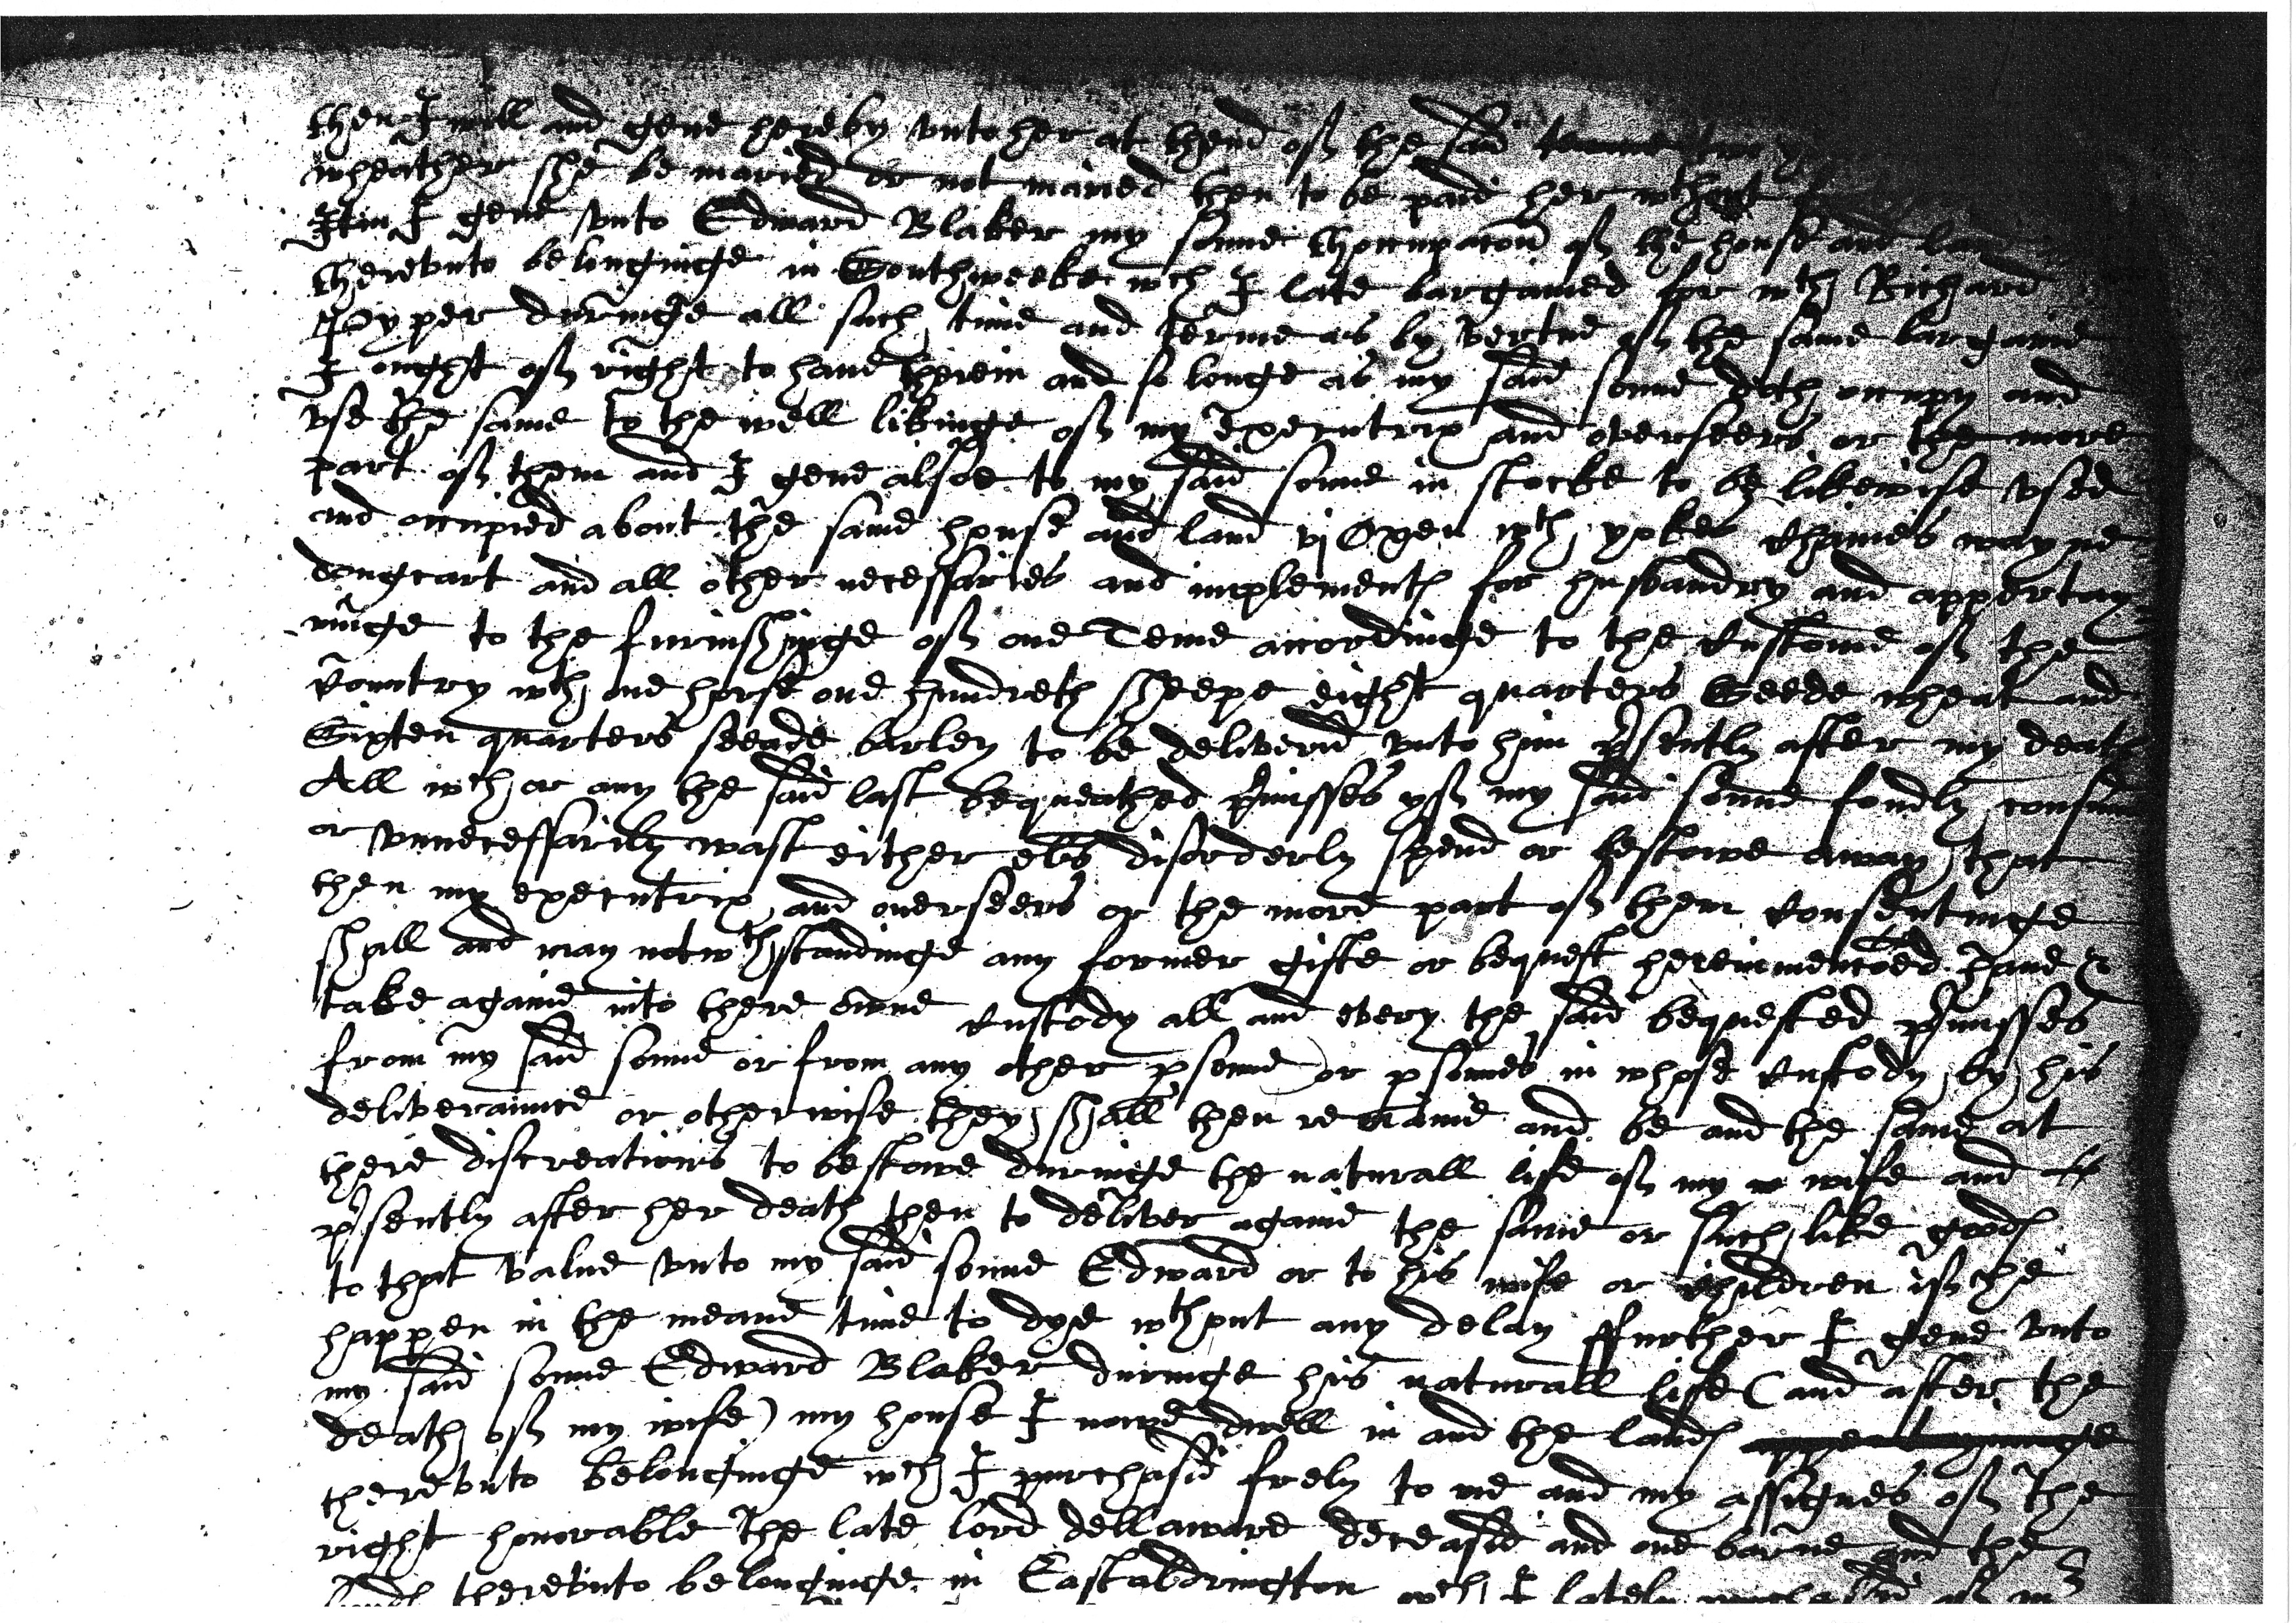 then I will and geve hereby unto her at thend of the said
wheather she be maried or not maried then to be paid her wthout
Itm I geve vnto Edward Blaker my sonne thoccupacon of the house and land
therevnto belonginge in Southweeke wch I late bargained for wth Richard
Pyper duringe all such time and terme as by vertue of the same bargaine
I ought of right to have therein and so longe as my said sonne doth occupy and
vse the same to the well likinge of my Executrix and overseers or the more
part of them and I geve alsoe to my said sonne in stocke to be likewise vsed
and occupied about the same house and land vj Oxen wth yokes chaines wayne
dongcart and all other necessaries and implementes for husbandry and appertay
ninge to the furnishinge of one Teme accordinge to the custome of the
Country wth one horse one hundreth sheepe eight quarters Seede wheat and
Sixten quarters seeade barley to be deliverd vnto him psently after my death
All wch or any the said last bequeathed pmisses yf my said sonne fondly consume
or vnnecessarily wast either els disorderly spend or bestowe away that
then my executrix and overseers or the more part of them consentinge
shall and may notwthstandinge any former gifte or bequest herein mencoed have &
take againe into there owne custody all and every the said bequested pmisses
from my said sonne or from any other psonne or psonnes in whose custody by his
deliveraunce or otherwise they shall then remaine and be and the same at
there discreations to bestowe duringe the naturall life of my wife and
psently after her death then to deliver againe the same or such like goodes
to that value vnto my said sonne Edward or to his wife or children if he
happen in the meane time to dye wthout any delay ffurther I geve vnto
my said sonne Edward Blaker duringe his naturall life (and after the
death of my wife) my house I nowe dwell in and the landes appertayninge
therevnto belonginge wch I purchasd frely to me and my assignes of the
right honorable the late lord dellaware deceasid and one barne and the
landes therevnto belonginge in Eastaldrington wch I lately purchasid of mr